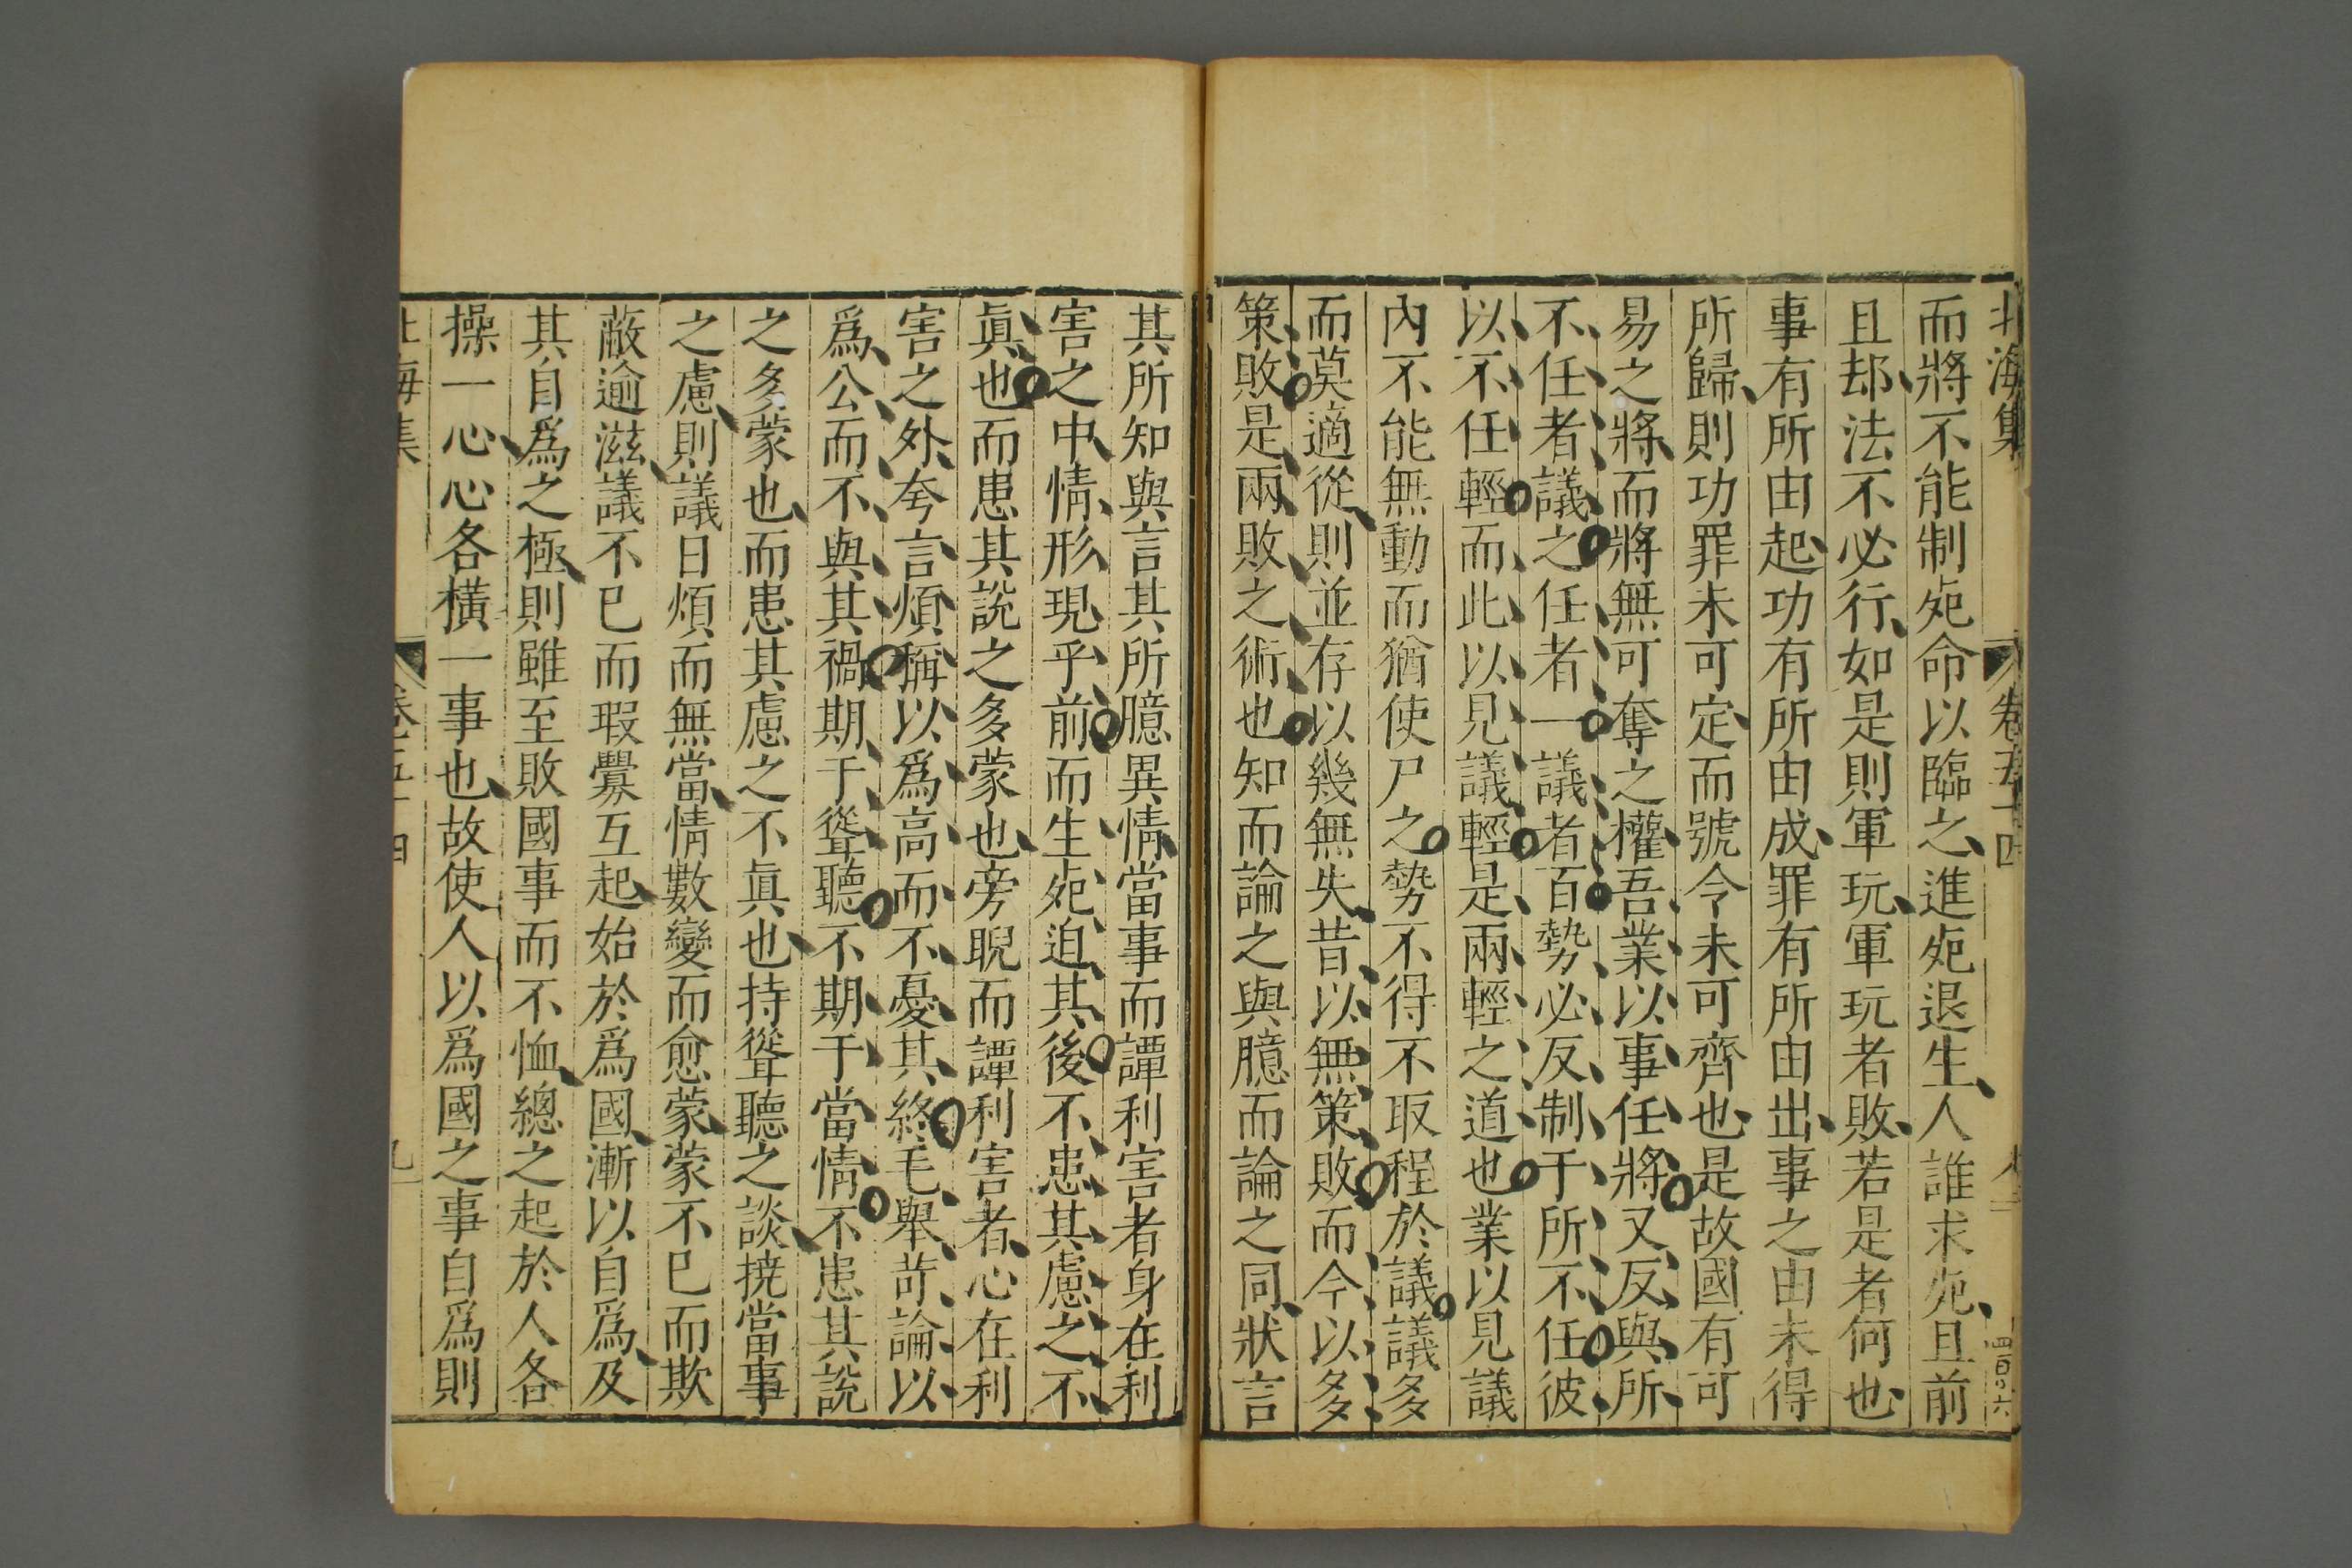 北海集 卷五十四
而將不能制宛命以臨之進宛退生人誰求宛且前
且却法不必行如是則軍玩軍玩者敗若是者何也
事有所由起功有所由成罪有所由出事之由未得
所歸則功罪未可定而號令未可齊也是故國有可
易之將而將無可奪之權吾業以事任將又反與所
不任者議之任者一議者百勢必反制于所不任彼
以不任輕而此以見議輕是兩輕之道也業以見議
內不能無動而猶使尸之勢不得不取程於議議多
而莫適從則並存以幾無失昔以無策敗而今以多
策敗是兩敗之術也知而論之與臆而論之同狀言
其所知與言其所臆異情當事而譚利害者身在利
害之中情形現乎前而生宛迫其後不患其慮之不
眞也而患其說之多蒙也旁睨而譚利害者心在利
害之外夸言煩稱以爲高而不憂其終毛舉苛論以
爲公而不與其禍期于聳聽不期于當情不患其說
之多蒙也而患其慮之不眞也持聳聽之談撓當事
之慮則議日煩而無當情數變而愈蒙蒙不已而欺
蔽逾滋議不已而瑕釁互起始於爲國漸以自爲及
其自爲之極則雖至敗國事而不恤總之起於人各
操一心心各橫一事也故使人以爲國之事自爲則
北海集 卷五十四 九